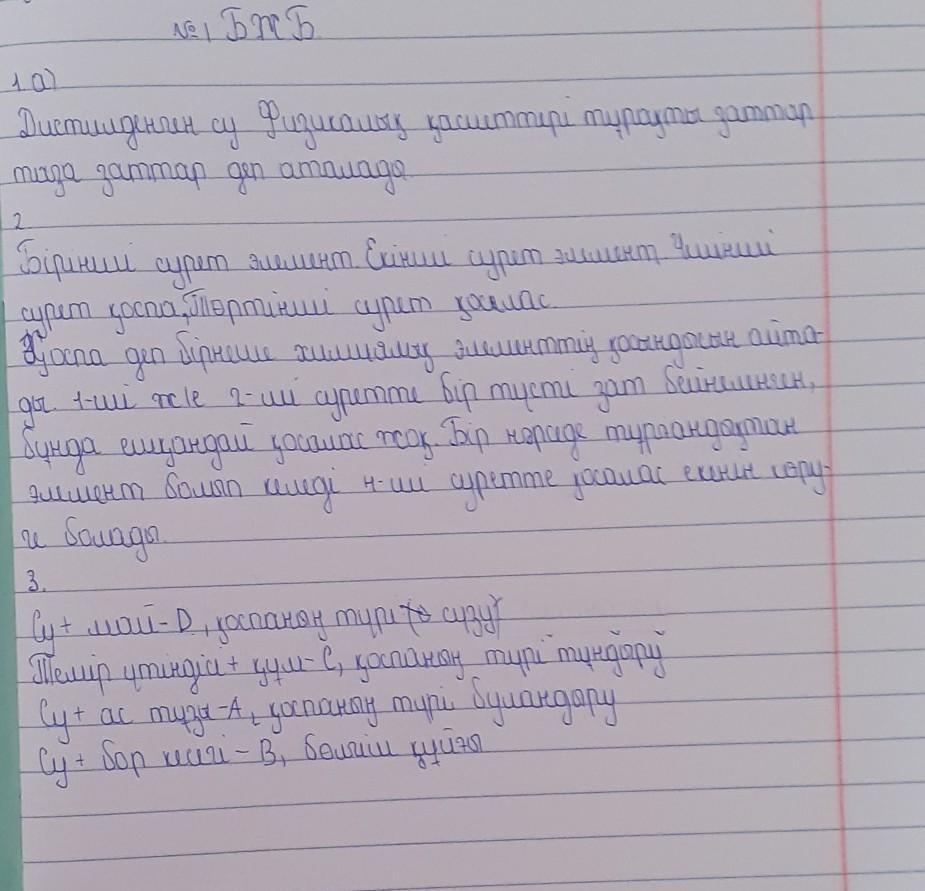 №1 БЖБ
1 а)
Дистилденген су Физикалық қасиеттері тұрақты заттар
таза заттар деп аталады
2
Бірінші сурет элемент. Екінші сурет элемент. Үшінші
сурет қоспа, Төртінші сурет қосылыс
Қоспа деп бірнеше химиялық элементтің қосындысын айта-
ды 1-ші және 2-ші суретте бір түсті зат бейнеленген,
бұнда ешқандай қосылыс жоқ. Бір нәрседе тұрғандықтан
элемент болып келеді 4-ші суретте қосылыс екенін көру-
ге болады.
3.
Су + май - D, қоспаның түрі сүзу
Темір үгіндісі + құм - С, қоспаның түрі тұндыру
Су + ас тұзы - А, қоспаның түрі буландыру
Су + бор - В, бөлгіш құйғы